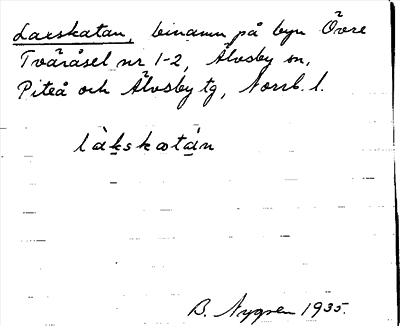 Laxskatan, binamn på byn Övre
Tväråsel nr 1-2, Älvsby sn,
Piteå och Älvsby tg, Norrb. l.
làkskatán
B. Nygren 1935.